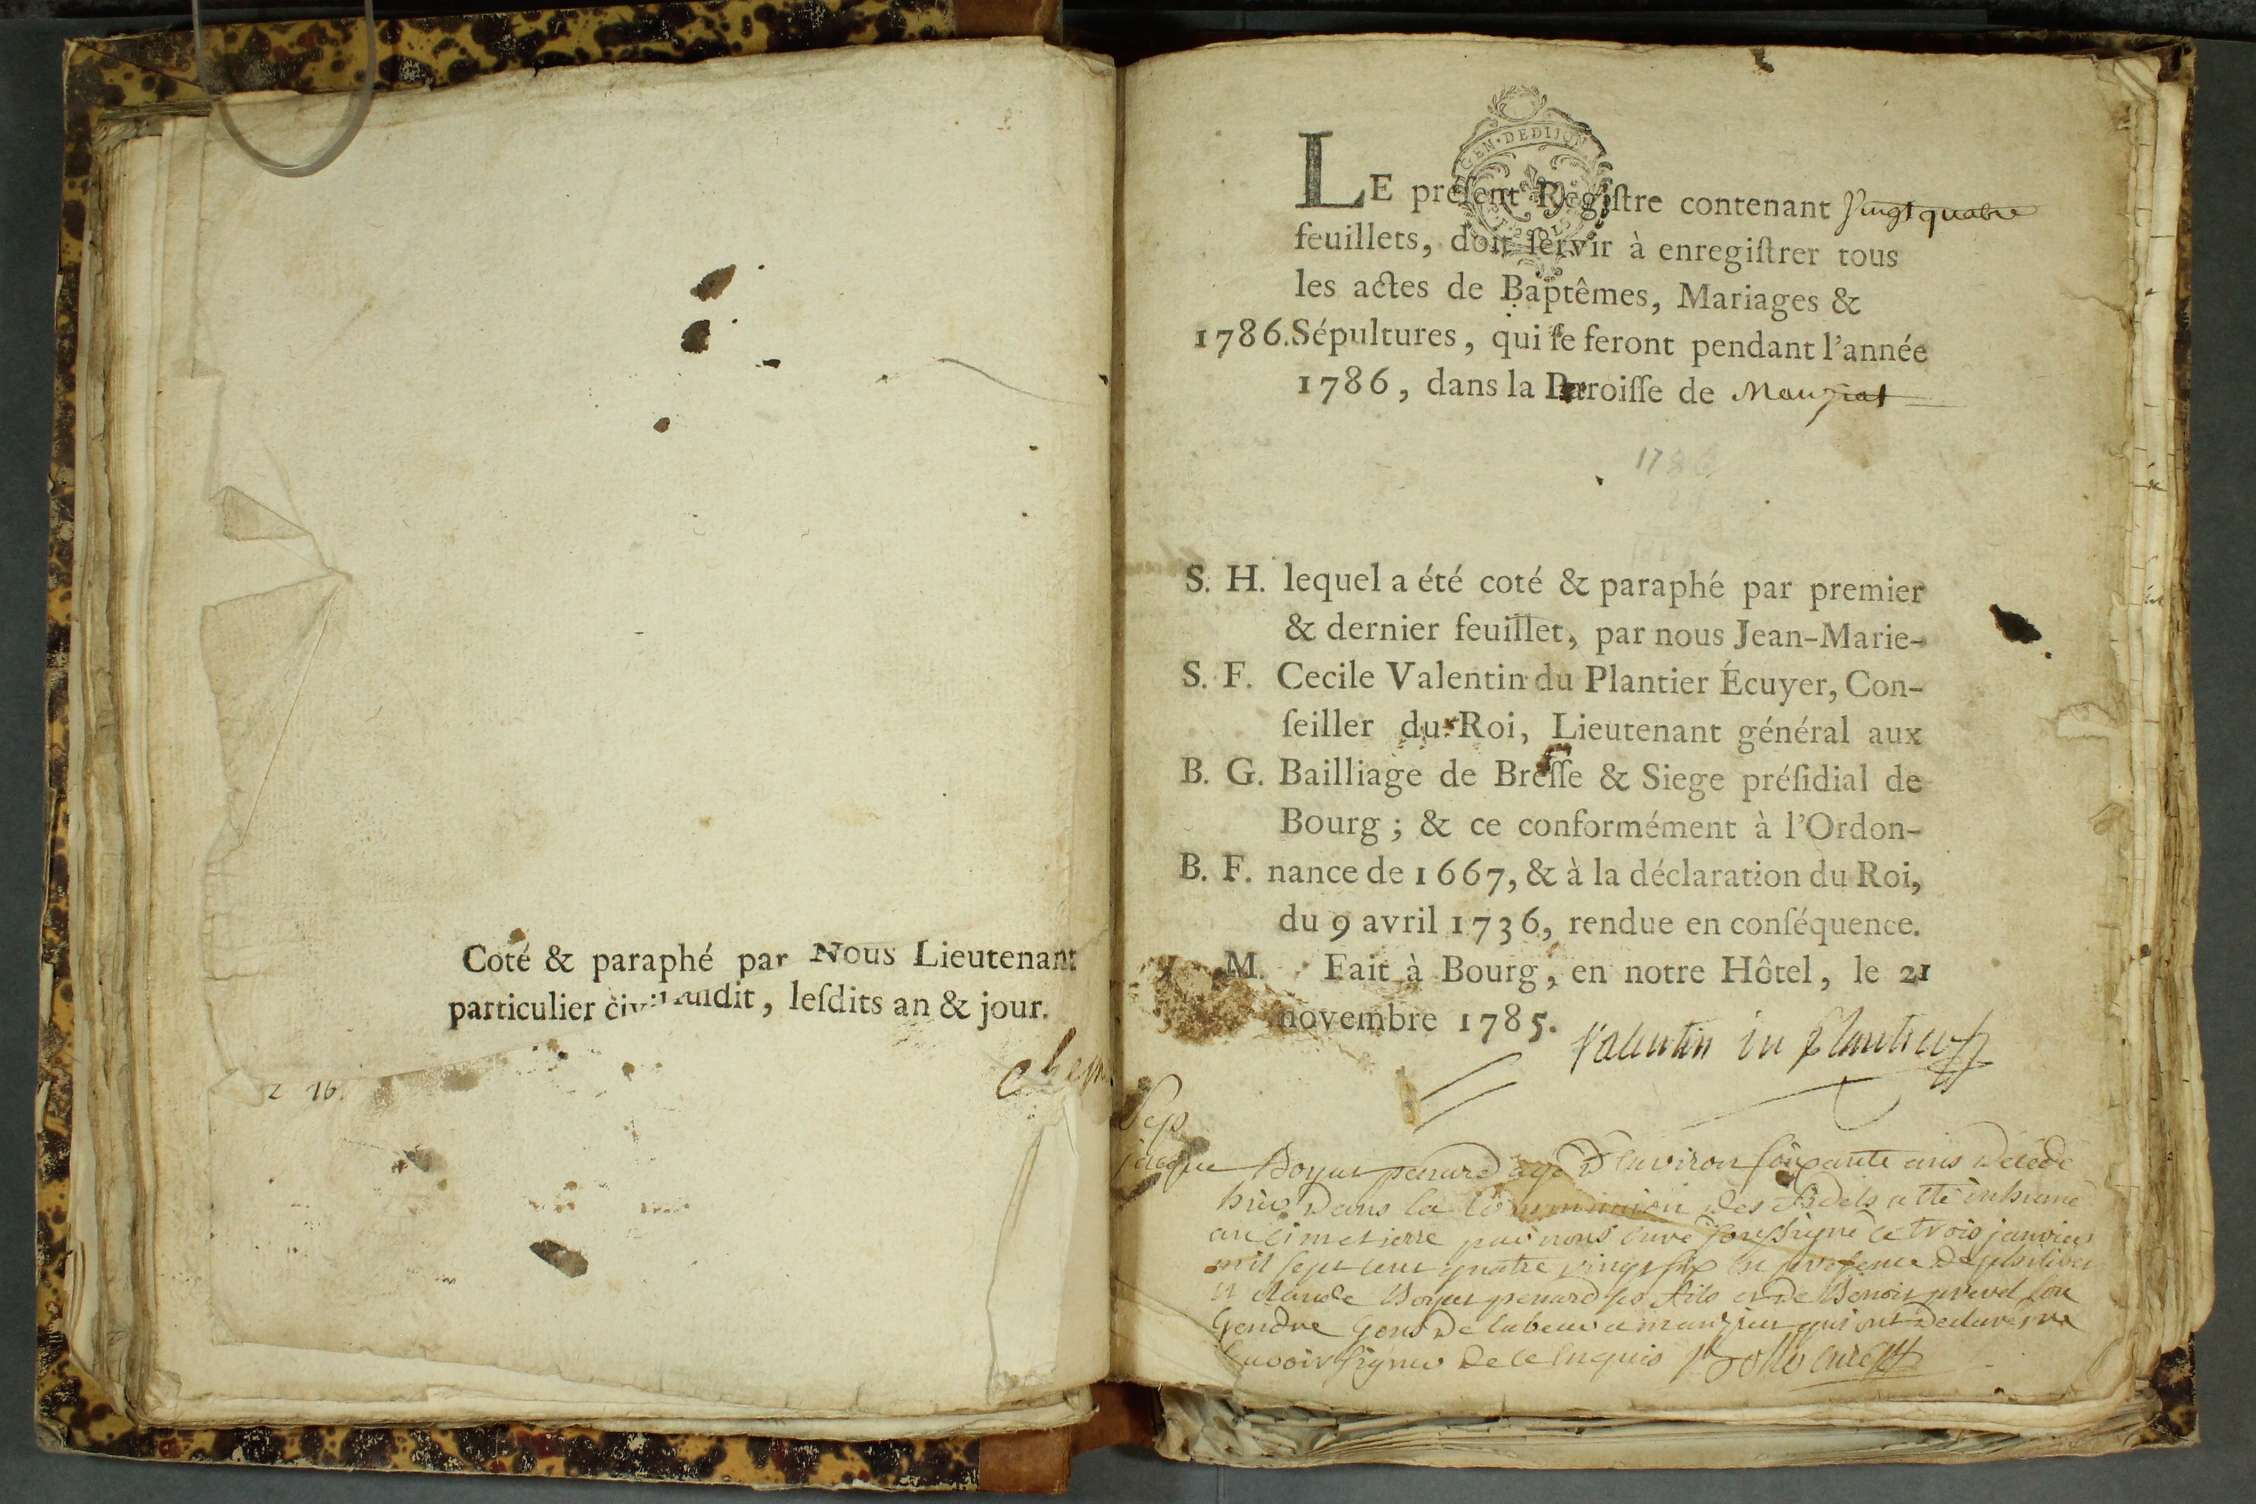 Coté & paraphé par Nous Lieutenant
particulier civil susdit, lesdits an & jour.
2 16.
GEN · DE DIJON
LE préſent Regiſtre contenant vingt quatre
feuillets, doit ſervir à enregiſtrer tous
les actes de Baptêmes, Mariages &
1786. Sépultures, qui ſe feront pendant l'année
1786, dans la Paroiſſe de Manziat
1786
S. H. lequel a été coté & paraphé par premier
& dernier feuillet, par nous Jean-Marie-
S. F. Cecile Valentin du Plantier Écuyer, Con-
ſeiller du Roi, Lieutenant général aux
B. G. Bailliage de Breſſe & Siege préſidial de
Bourg ; & ce conformément à l'Ordon-
B. F. nance de 1667, & à la déclaration du Roi,
du 9 avril 1736, rendue en conſéquence.
M. Fait à Bourg, en notre Hôtel, le 21
novembre 1785. Valentin du Plantier
Sep
Boyat penard agé d'environ soixante ans decedé
hier dans la Communion des fidels a été inhumé
au cimetierre par nous curé soussigné ce trois janvier
mil sept cent quatre vingt six en presence de
et claude Boyat penard ses fils et de Benoit prevel son
gendre gens de labeur a manziat qui ont declarés ne
savoir signer de ce enquis curé